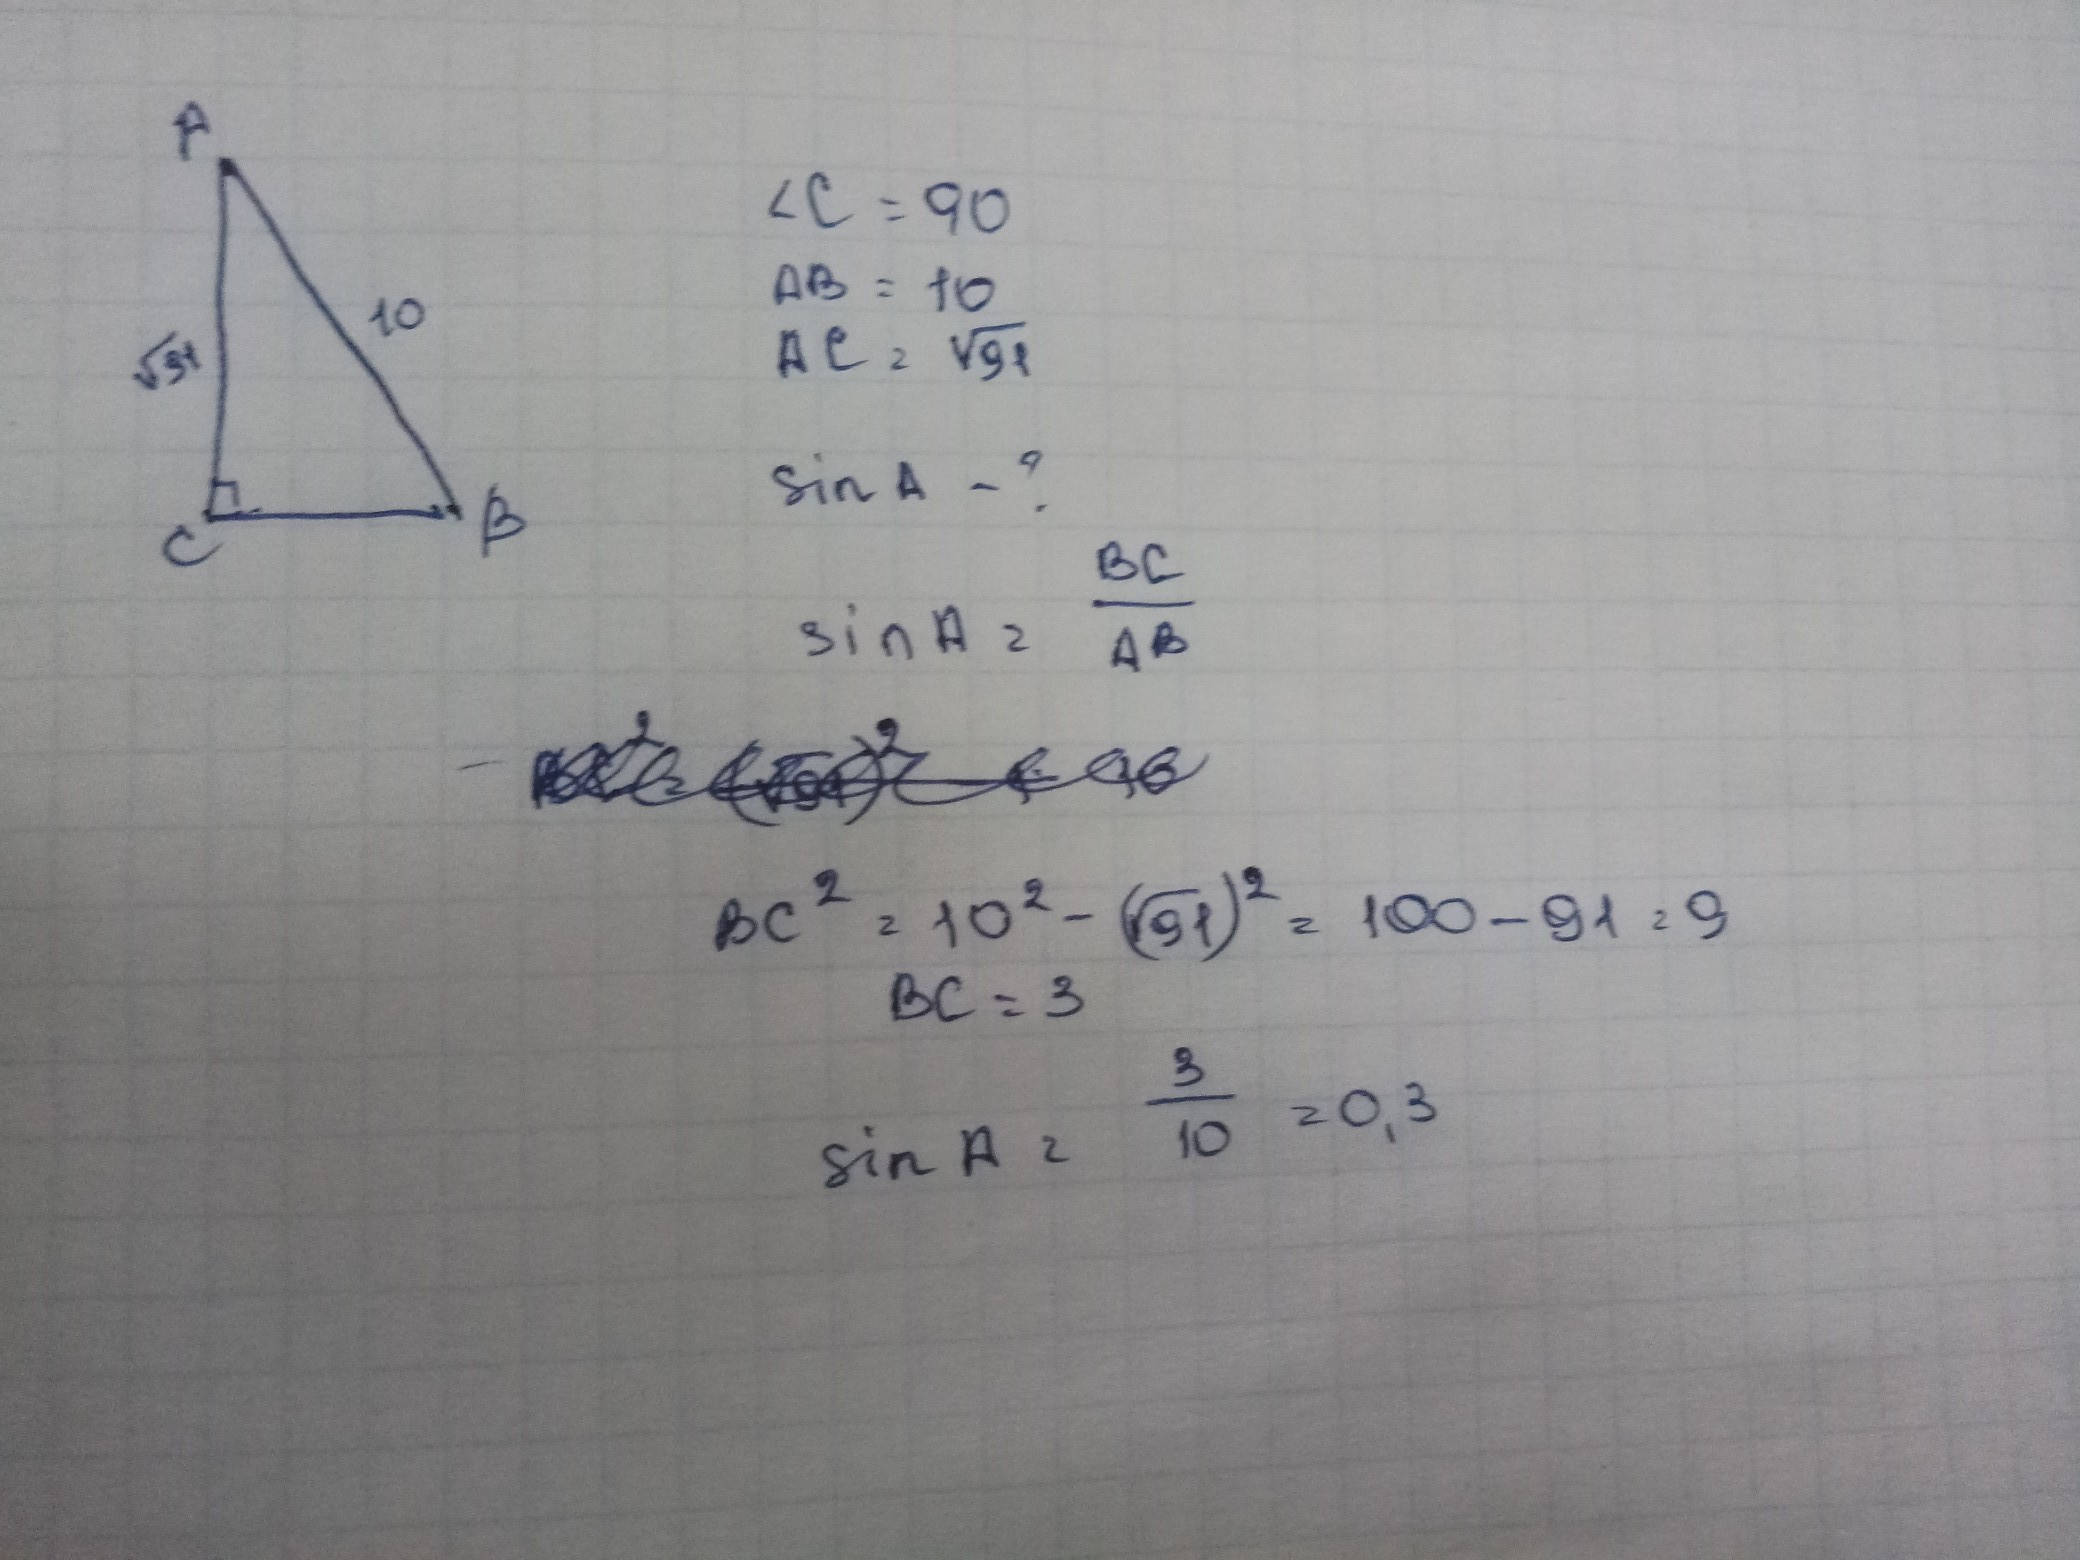 A
√91
10
C
B
<C = 90
AB = 10
AC = √91
sin A - ?
sin A = BC/AB
BC² = 10² - (√91)² = 100 - 91 = 9
BC = 3
sin A = 3/10 = 0,3